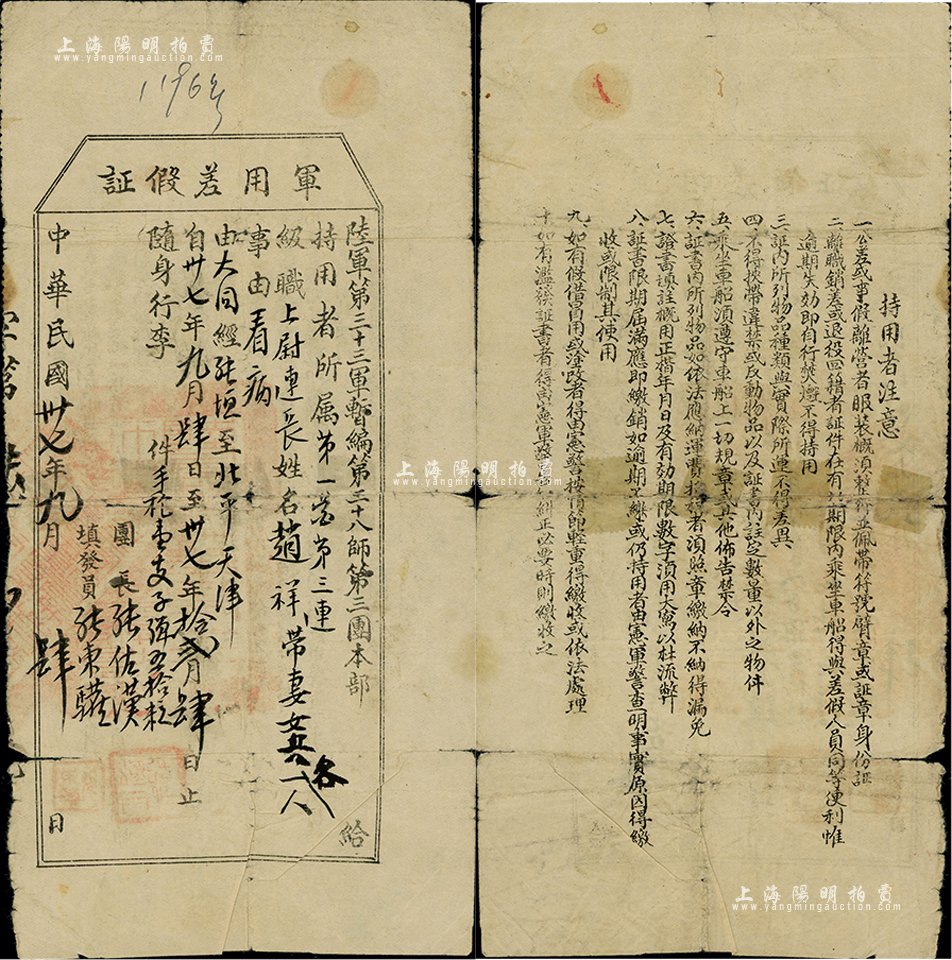 上海陽明拍賣
www.yangmingauction.com
1196号
軍用差假証
陸軍第三十三軍暫編第三十八師第三團本部
持用者所属第一营第三連
級職上尉連長姓名趙祥 帶妻女兵各一人
事由看病
由大同經張垣至北平天津
自卅七年九月肆日至卅七年拾贰月肆日止
隨身行李 件手枪壹支子弹五拾粒
團長張佐漢
填發員張東驥
中華民國卅七年九月肆日
給
上海陽明拍賣
www.yangmingauction.com
持用者注意
一公差或事假離營者服装概須整齊並佩帶符號臂章或証章身份証
二離職銷差或退役回籍者証件在有效期限內乘坐車船得與差假人員同等便利惟
逾期失効即自行焚燬不得持用
三証內所列物品種類與實際所運不得差異
四不得挾帶違禁或反動物品以及証書內註定數量以外之物件
五乘坐車船須遵守車船上一切規章或其他佈告禁令
六証書內所列物品如依法應納運費捐稅者須照章繳納不納得漏免
七證書填註概用正楷年月日及有効期限數字須用大寫以杜流弊
八証書限期屆滿應即繳銷如逾期不繳或仍持用者由憲軍警查明事實原因得繳
收或限制其使用
九如有假借冒用或塗改者得由憲警按情節輕重得繳收或依法處理
十如有濫發証書者得由憲軍警 糾正必要時則繳收之
上海陽明拍賣
www.yangmingauction.com
上海陽明拍賣
www.yangmingauction.com